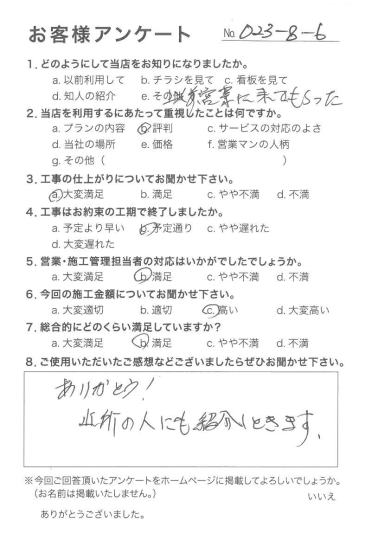 お客様アンケート No. 023-8-6
1. どのようにして当店をお知りになりましたか。
a. 以前利用して b. チラシを見て c. 看板を見て
d. 知人の紹介 e. その他 以前営業に来てもらった
2. 当店を利用するにあたって重視したことは何ですか。
a. プランの内容 b. 評判 c. サービスの対応のよさ
d. 当社の場所 e. 価格 f. 営業マンの人柄
g. その他（ ）
3. 工事の仕上がりについてお聞かせ下さい。
a. 大変満足 b. 満足 c. やや不満 d. 不満
4. 工事はお約束の工期で終了しましたか。
a. 予定より早い b. 予定通り c. やや遅れた
d. 大変遅れた
5. 営業・施工管理担当者の対応はいかがでしたでしょうか。
a. 大変満足 b. 満足 c. やや不満 d. 不満
6. 今回の施工金額についてお聞かせ下さい。
a. 大変適切 b. 適切 c. 高い d. 大変高い
7. 総合的にどのくらい満足していますか?
a. 大変満足 b. 満足 c. やや不満 d. 不満
8. ご使用いただいたご感想などございましたらぜひお聞かせ下さい。
ありがとう!
近所の人にも紹介しときます、
※今回ご回答頂いたアンケートをホームページに掲載してよろしいでしょうか。
（お名前は掲載いたしません。） いいえ
ありがとうございました。